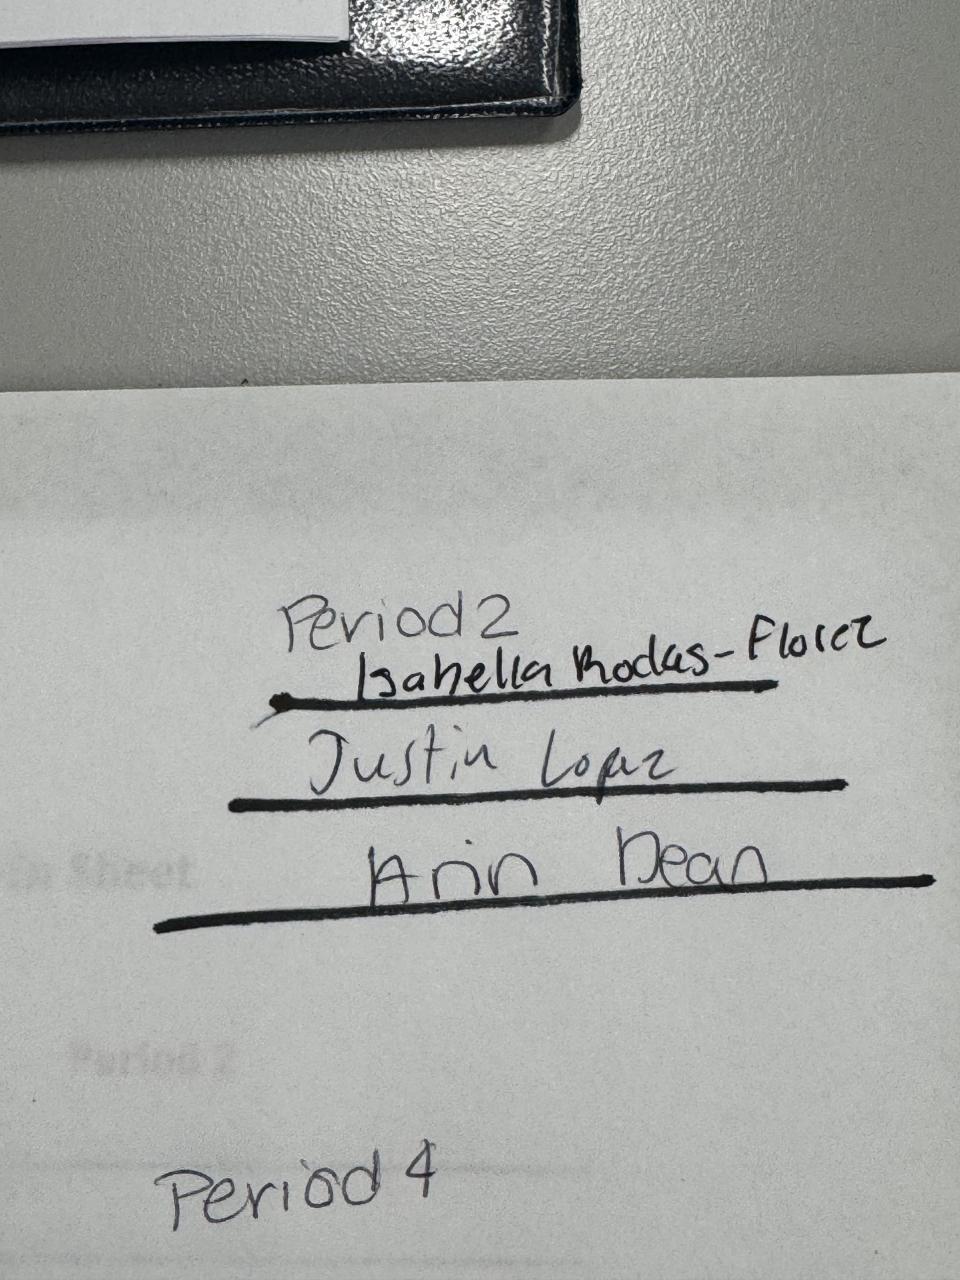 Period 2
Isabella Rodas-Florez
Justin Lopez
Arin Dean
in Sheet
Period 2
Period 4